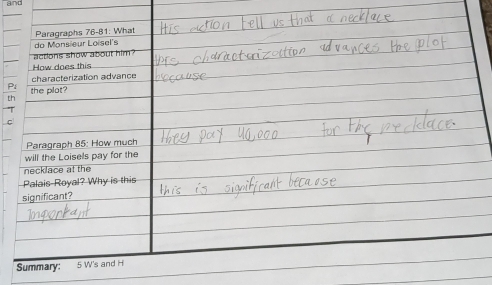 and
Paragraphs 76-81: What
do Monsieur Loisel's
actions show about him?
How does this
characterization advance
the plot?
His action tell us that a necklace
characterization advances the plot
because
th
T
c
Paragraph 85: How much
will the Loisels pay for the
necklace at the
Palais-Royal? Why is this
significant?
important
they pay 40,000 for the necklace.
this is significant because
Summary: 5 W's and H